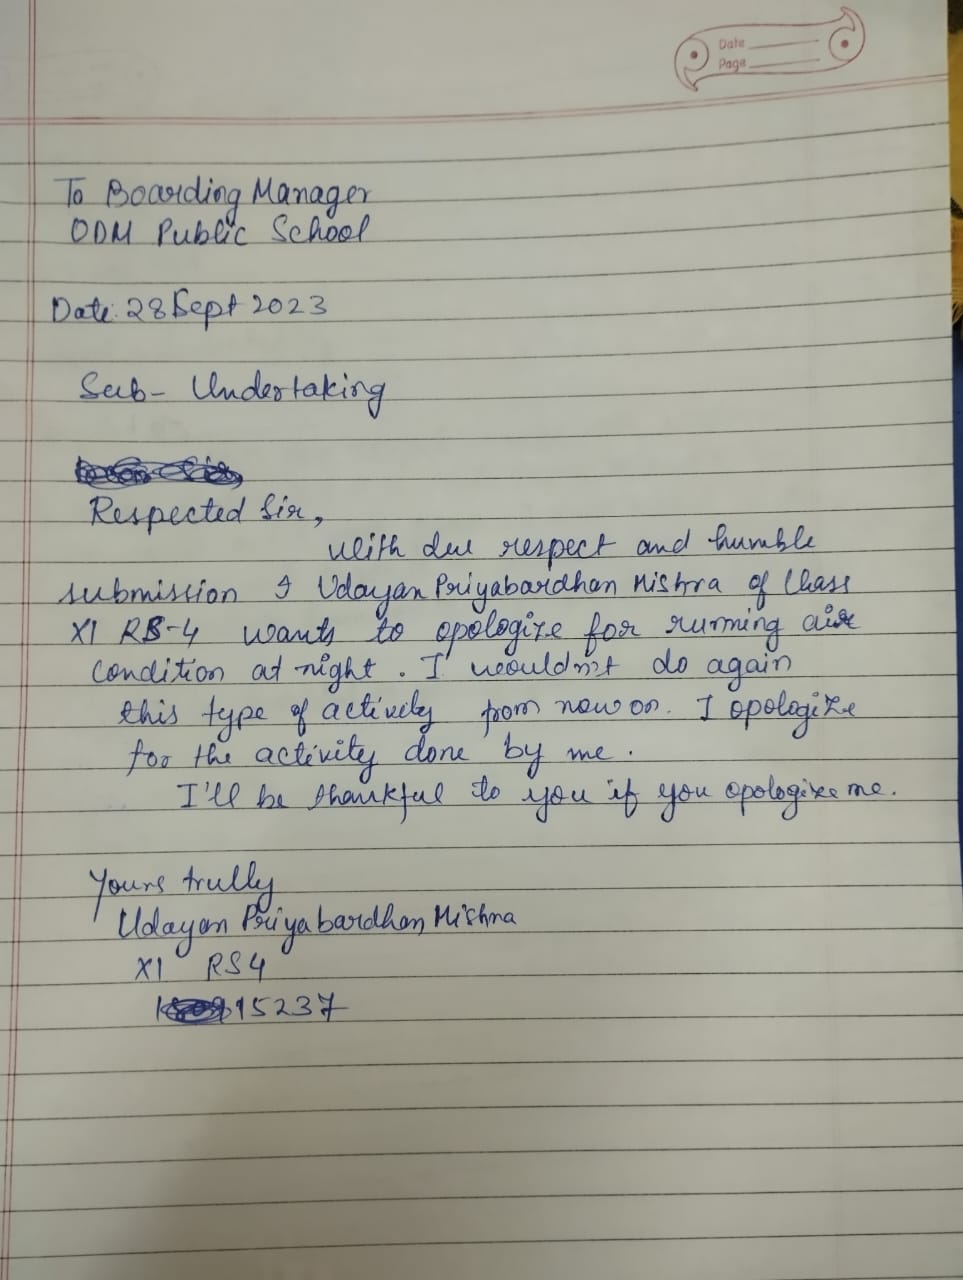 Date
Page
To Boarding Manager
ODM Public School
Date: 28 Sept 2023
Sub- Undertaking
Respected Sir,
with due respect and humble
submission I Udayan Priyabardhan Mishra of Class
XI RS-4 wants to opologize for running air
condition at night. I wouldn't do again
this type of activity from now on. I opologize
for the activity done by me.
I'll be thankful to you if you opologize me.
Yours trully
Udayan Priyabardhan Mishra
XI RS4
15237